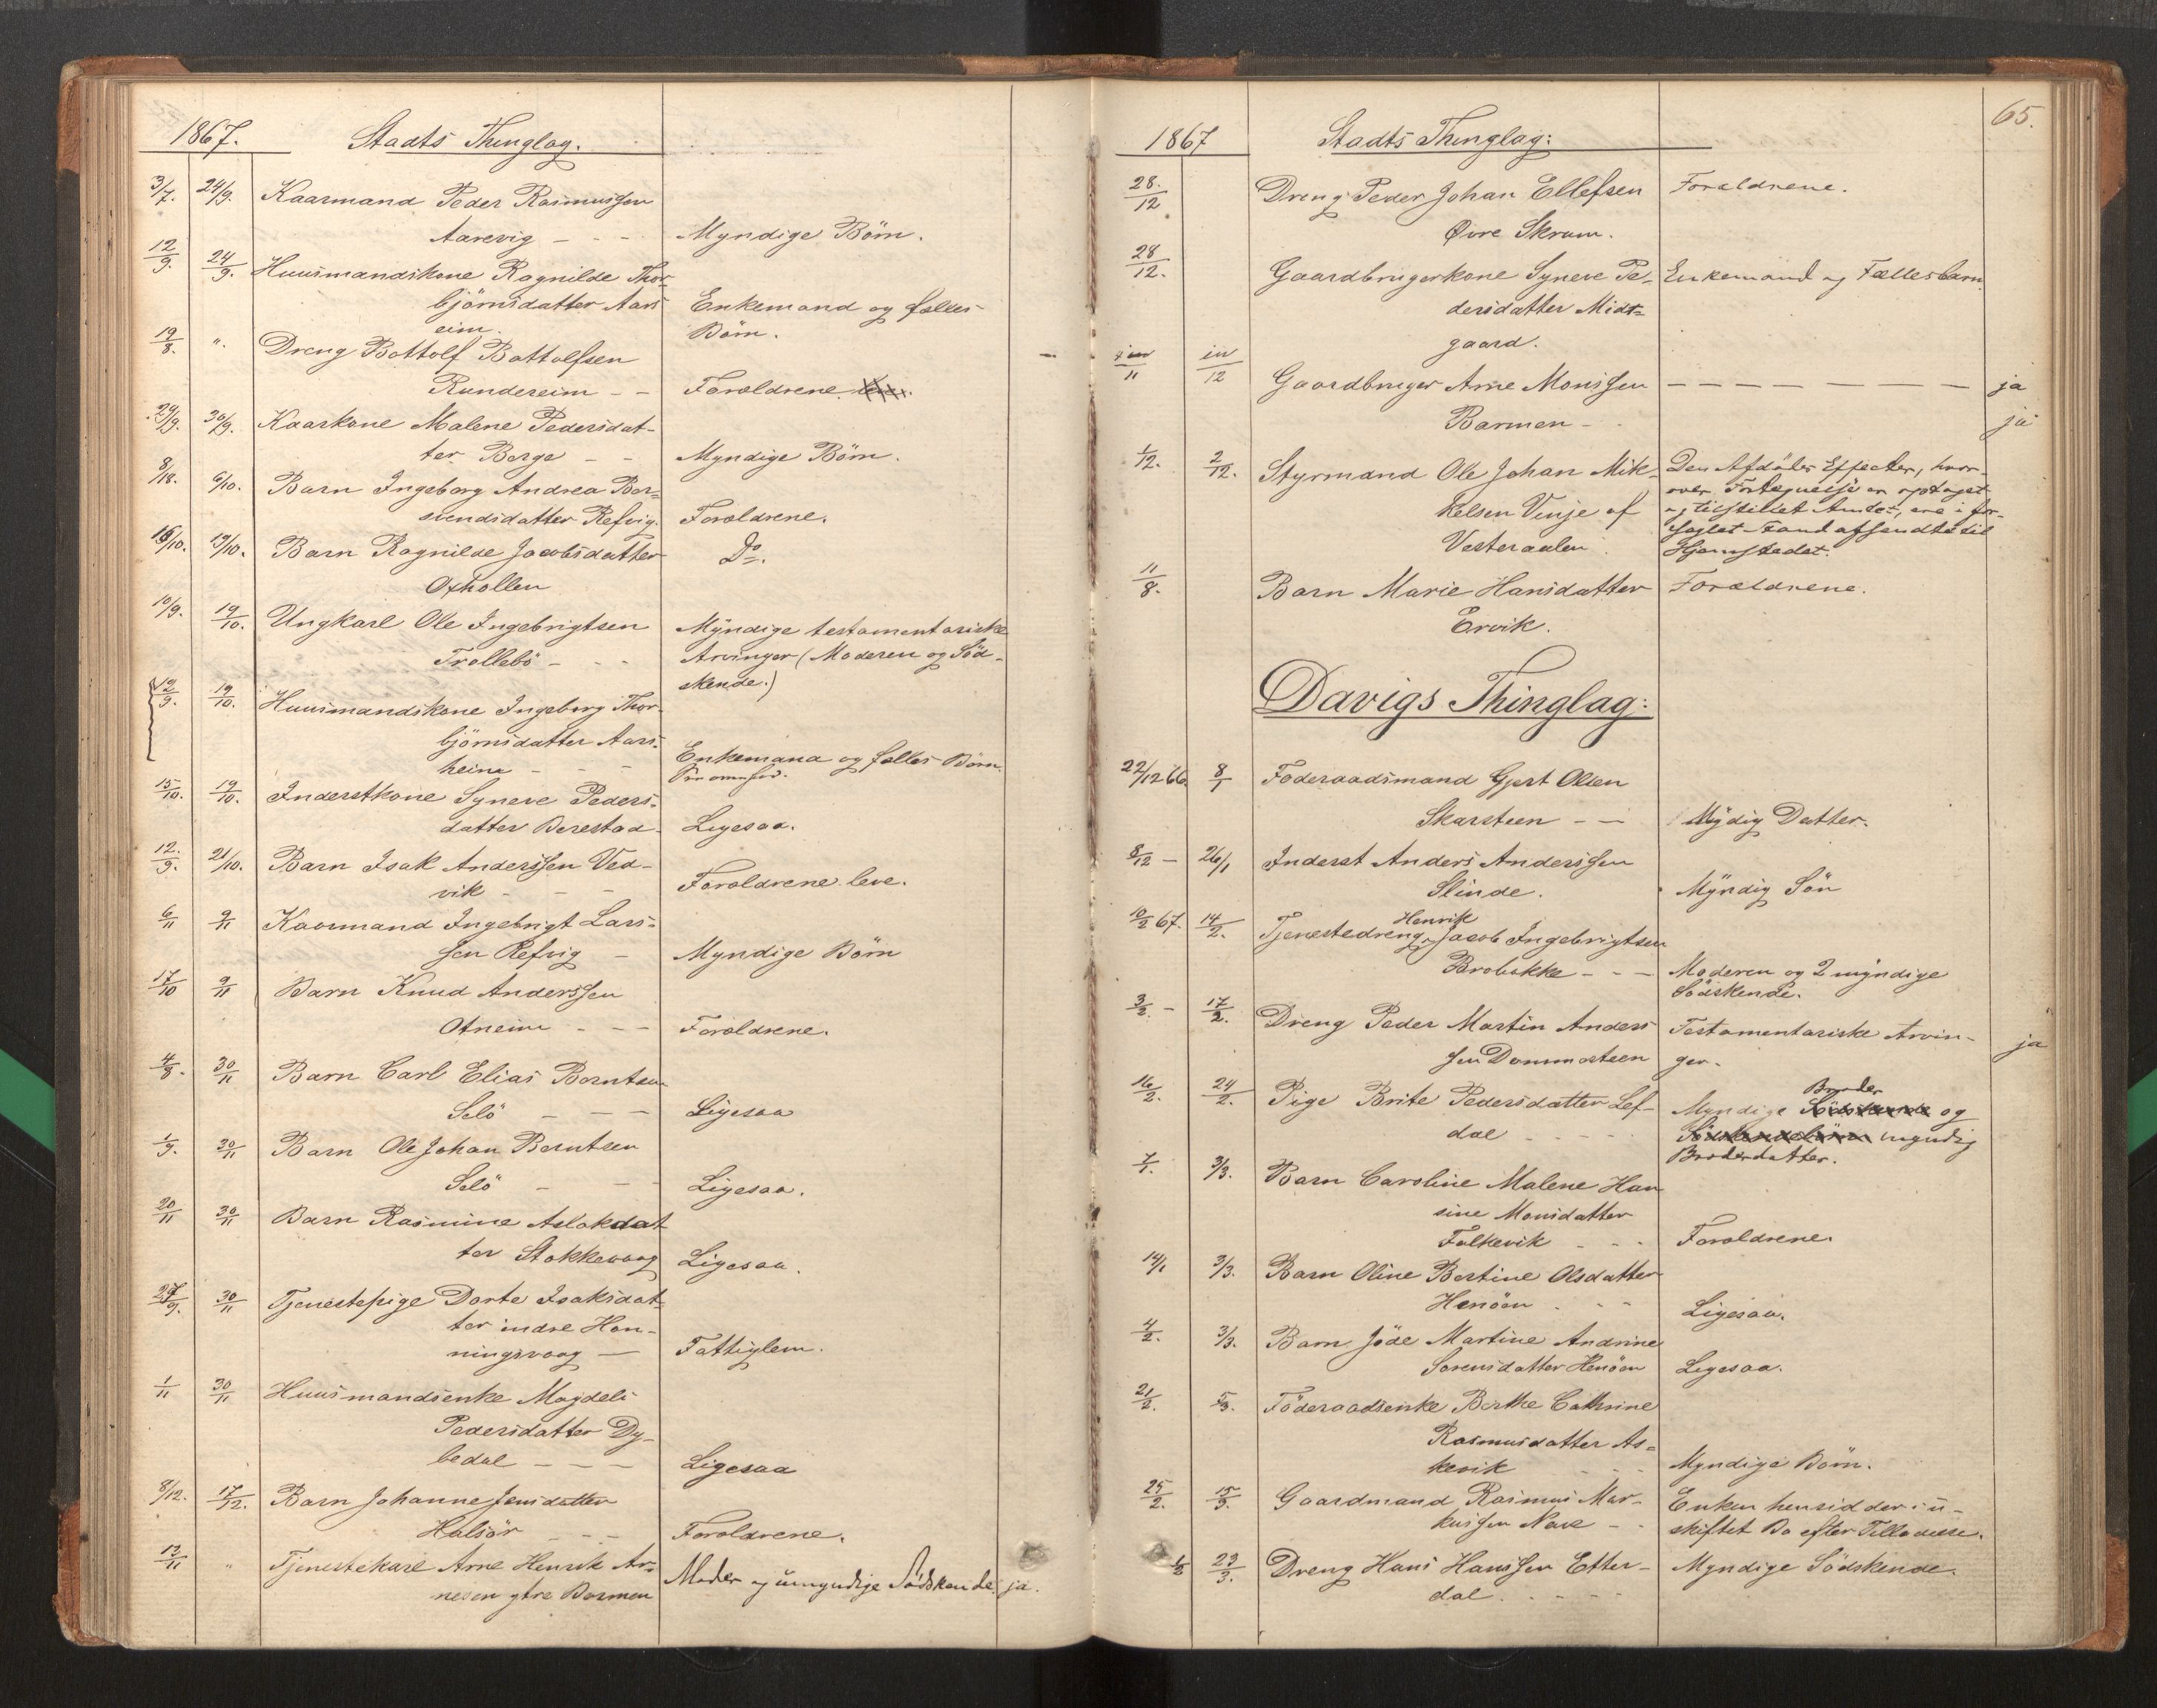 1867. Stadts Thinglag.
3/7. 24/9. Kaarmand Peder Rasmussen
Aarevig – – – Myndige Börn.
12/9. 24/9. Huusmandskone Ragnilde Thor-
björnsdatter Aars Enkemand og fælles-
eim. Börn.
19/8. ". Dreng Bottolf Bottolfsen
Rundereim – – Forældrene.
29/9. 30/9. Kaarkone Malene Pedersdat-
ter Berge – – Myndige Börn.
8/18. 6/10. Barn Ingeborg Andrea Ber-
svendsdatter Refvig. Forældrene.
16/10. 19/10. Barn Ragnilde Jacobsdatter Do.
Oxhollen
10/9. 19/10. Ungkarl Ole Ingebrigtsen Myndige testamentariske
Trollebö – – – Arvinger (Moderen og Söd-
skende.)
12/9. 19/10. Huusmandskone Ingeborg Thor-
björnsdatter Aars-
heim – – – Enkemand og fælles Börn.
15/10. 19/10. Inderstkone Syneve Peders-
datter Berestad Ligesaa.
12/9. 21/10. Barn Isak Anderssen Ved-
vik – – – Forældrene leve.
6/11 9/11 Kaarmand Ingebrigt Lars-
sen Refvig – Myndige Börn
17/10 9/11 Barn Knud Anderssen
Otneim – – – Forældrene.
4/8. 30/11 Barn Carl Elias Berntsen
Selö – – – Ligesaa
1/9. 30/11 Barn Ole Johan Berntsen
Selö – – Ligesaa.
20/11 30/11 Barn Rasmine Aslakdat
ter Stokkevaag Ligesaa.
27/9. 30/11 Tjenestepige Dorte Isaksdat
ter indre Hon-
ningsvaag — Fattiglem.
1/11 30/11 Huusmandsenke Magdeli
Pedersdatter Dy-
bedal – – – Ligesaa
8/12. 17/12. Barn Johanne Jensdatter
Halsör – – – Forældrene.
13/11 " Tjenestekarl Arne Henrik Ar-
nesen ytre Barmen Moder og umyndige Södskende. ja.
65.
1867 Stadts Thinglag:
28./12 Dreng Peder Johan Ellefsen Forældrene.
Övre Skram.
28/12. Gaardbrugerkone Syneve Pe- Enkemand og Fællesbarn.
dersdatter Midt-
gaard.
in/11 in/12 Gaardbruger Arne Monssen – – – – – – – ja
Barmen – ja
1/12. 2/12. Styrmand Ole Johan Mik- Den Afdödes Effecter, hvor-
kelsen Vinje af over Fortegnelse er optaget
og tilstillet Amtet, ere i for-
Vesteraalen. seglet Stand afsendte til
Hjemstedet.
11/8. Barn Marie Hansdatter Forældrene.
Ervik.
Davigs Thinglag:
22/12 66. 8/1 Föderaadsmand Gjert Olsen
Skarsteen – — Mydig Datter.
8/12 — 26/1 Inderst Anders Anderssen
Slinde. Myndig Sön
Henrik
10/2 67. 14/2. Tjenestedreng Jacob Ingebrigtsen
Brobakke – – — Moderen og 2 myndige
Södskende.
3/2. – 17/2. Dreng Peder Martin Anders Testamentariske Arvin- ja
sen Dommasteen ger.
Broder
16/2. 24/2. Pige Brite Pedersdatter Lef- Myndige Södskende og
dal – – – – Södskendebörn myndig
Broderdatter.
7/1. 3/3. Barn Caroline Malene Han
sine Monsdatter
Falkevik – – – Forældrene.
14/1 3/3. Barn Oline Bertine Olsdatter
Henöen – – Ligesaa.
4/2. 3/3. Barn Jöde Martine Andrine
Sorensdatter Henöen Ligesaa.
21/2. 5/3. Föderaadsenke Berthe Cathrine
Rasmusdatter As-
kevik – – – Myndige Börn.
25/2. 15/3. Gaardmand Rasmus Mar- Enken hensidder i u-
kussen Nave – – skiftet Bo efter Tilladelse.
23/3. Dreng Hans Hanssen Etter- Myndige Södskende.
dal – – – –